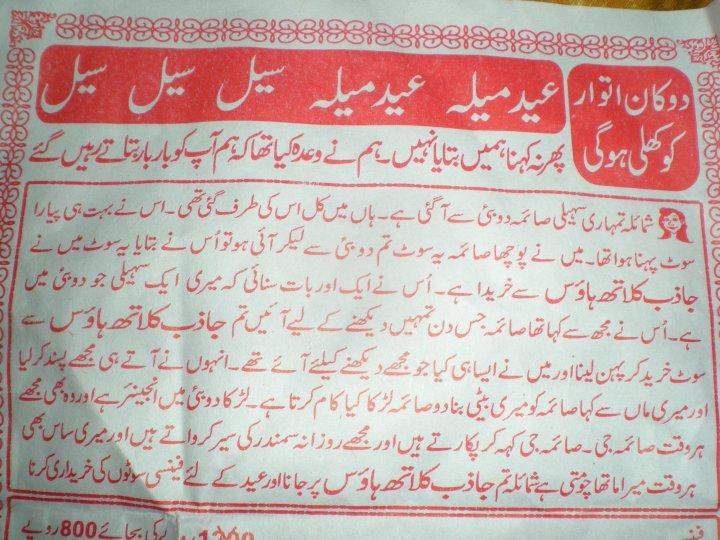 عید میلہ عید میلہ سیل سیل سیل
دوکان اتوار
کو کھلی ہوگی
پھر نہ کہنا ہمیں بتایا نہیں۔ ہم نے وعدہ کیا تھا کہ ہم آپ کو بار بار بتاتے رہیں گے
شمائلہ تمہاری سہیلی صائمہ دوبئی سے آگئی ہے۔ ہاں میں کل اس کی طرف گئی تھی۔ اس نے بہت ہی پیارا
سوٹ پہنا ہوا تھا۔ میں نے پوچھا صائمہ یہ سوٹ تم دوبئی سے لیکر آئی ہو تو اُس نے بتایا یہ سوٹ میں نے
جاذب کلاتھ ہاؤس سے خریدا ہے۔ اُس نے ایک اور بات سنائی کہ میری ایک سہیلی جو دوبئی میں
ہے۔ اُس نے مجھ سے کہا تھا صائمہ جس دن تمہیں دیکھنے کے لیے آئیں تم جاذب کلاتھ ہاؤس سے
سوٹ خرید کر پہن لینا اور میں نے ایسا ہی کیا جو مجھے دیکھنے کیلئے آئے تھے۔ انہوں نے آتے ہی مجھے پسند کرلیا
اور میری ماں سے کہا صائمہ کو میری بیٹی بنا دو صائمہ لڑکا کیا کام کرتا ہے۔ لڑکا دوبئی میں انجینئر ہے اور وہ بھی مجھے
ہر وقت صائمہ جی۔ صائمہ جی کہہ کر پکارتے ہیں اور مجھے روزانہ سمندر کی سیر کرواتے ہیں اور میری ساس بھی
ہر وقت میرا ماتھا چومتی ہے شمائلہ تم جاذب کلاتھ ہاؤس پر جانا اور عید کے لئے فینسی سوٹوں کی خریداری کرنا
کی بجائے 800 روپے